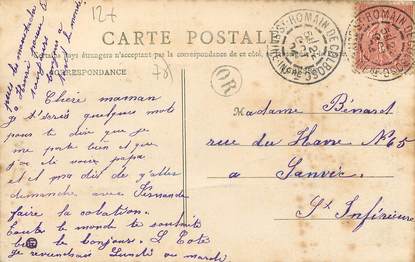 12+
CARTE POSTALE
pays étrangers n'acceptent pas la correspondance de ce côté,
CORRESPONDANCE
78
OR
ST-ROMAIN DE COLBOSC
Chère maman
je t'écris quelques mots
pour te dire que je
me porte bien et que
j'ai vu papa
et il m'a dit d'y aller
dimanche avec Fernande
faire la
Toute le monde te souhaite
bien le bonjour.
je reviendrais Lundi ou mardi
Madame Bénard
rue du Havre N° 65
a Sanvic
Se Inférieure